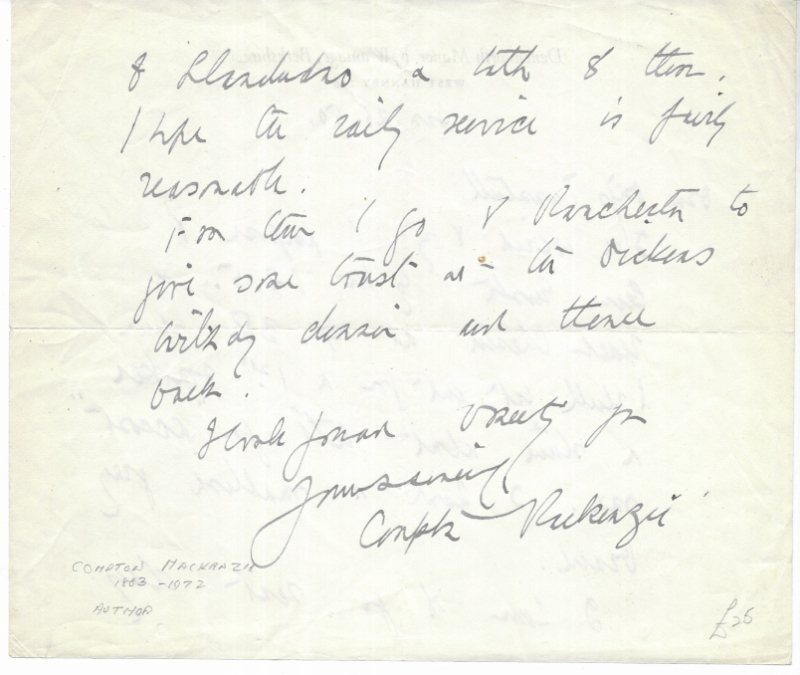 of Llandudno a 
I hope the rail service is fairly
reasonable.
From there I go to Manchester to
give some toast at the Dickens
birthday dinner and thence
back.
I look forward to meeting you
Yours sincerely
Compton Mackenzie
COMPTON MACKENZIE
1883-1972
AUTHOR
£25